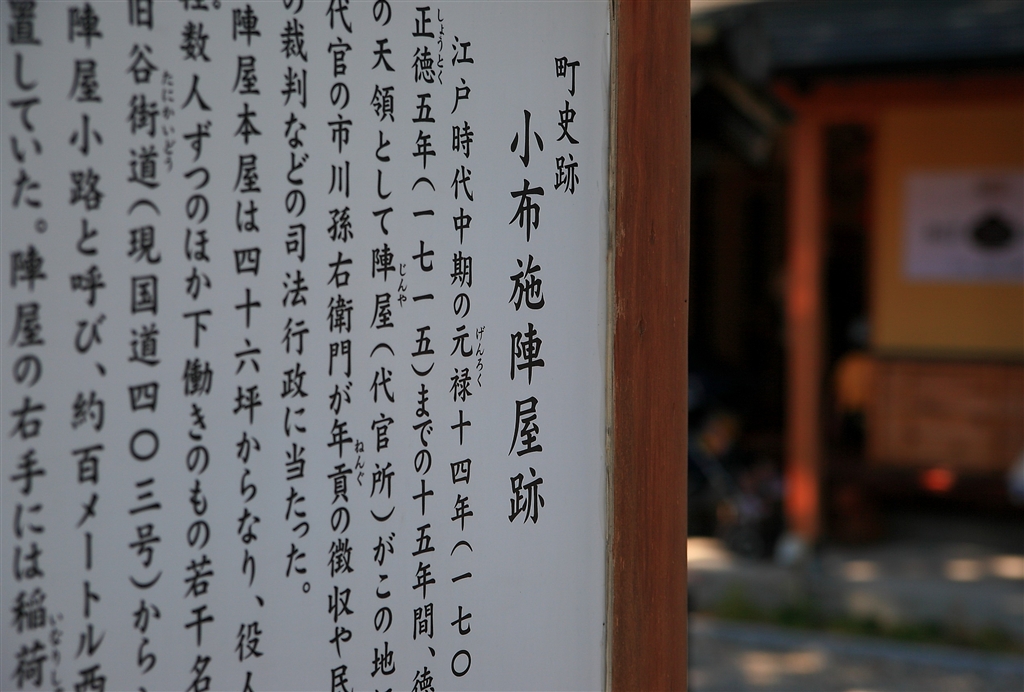 町史跡
小布施陣屋跡
江戸時代中期の元禄十四年（一七〇
げんろく
正徳五年（一七一五）までの十五年間、徳
しょうとく
の天領として陣屋（代官所）がこの地
じんや
代官の市川孫右衛門が年貢の徴収や民
ねんぐ
の裁判などの司法行政に当たった。
陣屋本屋は四十六坪からなり、役人
数人ずつのほか下働きのもの若干名
旧谷街道（現国道四〇三号）から
たにかいどう
陣屋小路と呼び、約百メートル西
置していた。陣屋の右手には稲荷
いなり